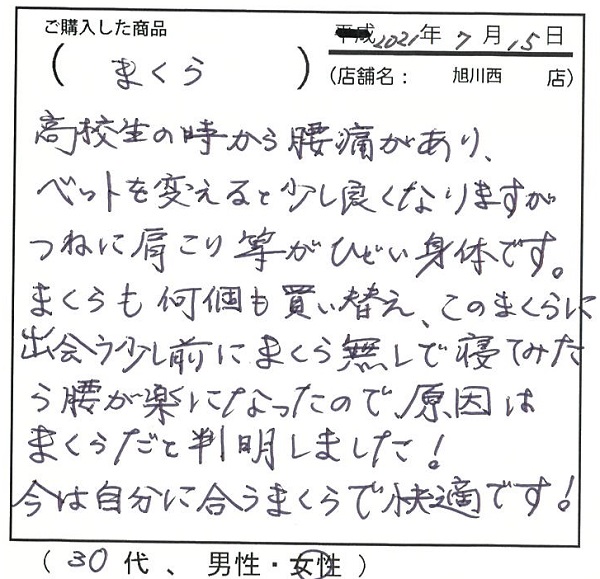 ご購入した商品
平成2021年 7月15日
( まくら )
(店舗名： 旭川西 店)
高校生の時から腰痛があり、
ベットを変えると少し良くなりますが
つねに肩こり等がひどい身体です。
まくらも何個も買い替え、このまくらに
出会う少し前にまくら無しで寝てみた
ら腰が楽になったので、原因は
まくらだと判明しました!
今は自分に合うまくらで快適です!
( 30 代 、 男性・女性 )